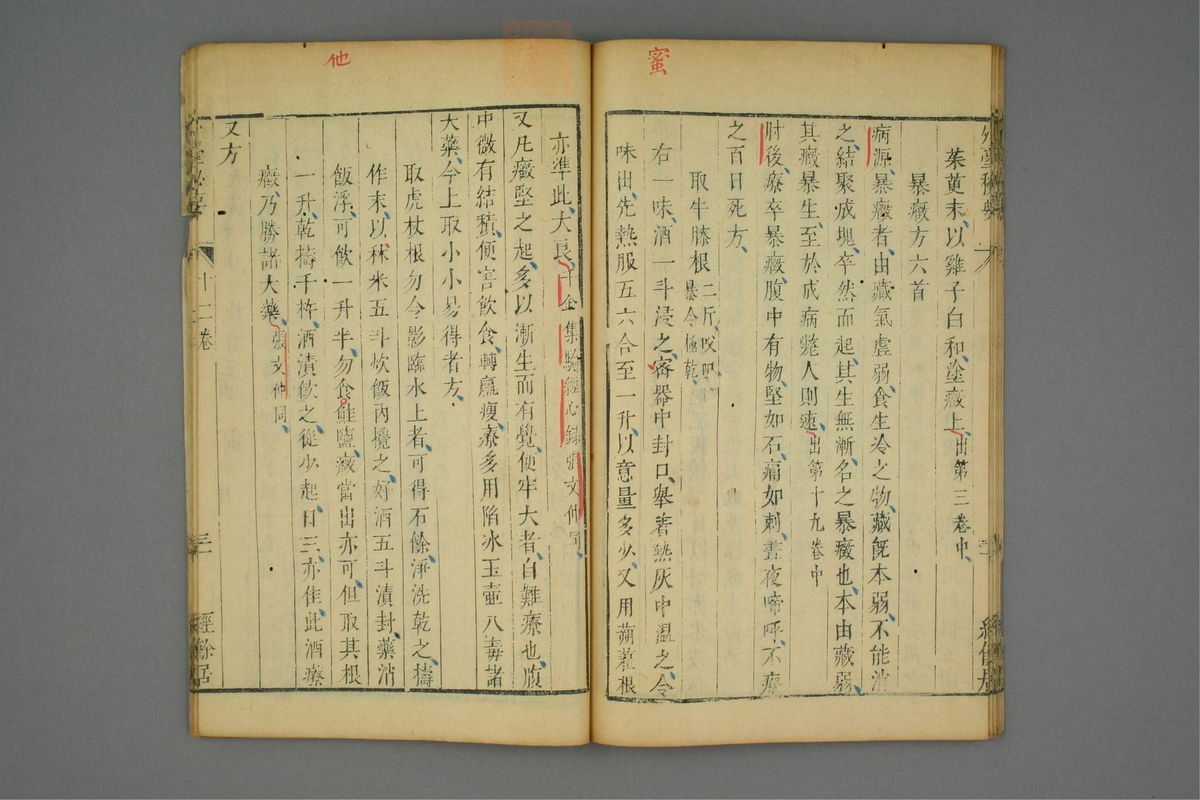 蜜
外臺秘要
茱萸末以雞子白和塗癥上出第三卷中
暴癥方六首
病源暴癥者由藏氣虛弱食生冷之物藏既本弱不能消
之結聚成塊卒然而起其生無漸名之暴癥也本由藏弱
其癥暴生至於成病斃人則速出第十九卷中
肘後療卒暴癥腹中有物堅如石痛如刺晝夜啼呼不療
之百日死方
取牛膝根二斤㕮咀暴令極乾
右一味酒一斗浸之密器中封口舉著熱灰中溫之令
味出先熱服五六合至一升以意量多少又用蒴藋根
他
亦準此大良千金集驗經心錄張文仲同
又凡癥堅之起多以漸生而有覺便牢大者自難療也腹
中微有結積便害飲食轉羸瘦療多用陷冰玉壺八毒諸
大藥今上取小小易得者方
取虎杖根勿令影臨水上者可得石餘淨洗乾之擣
作末以秫米五斗炊飯內攪之好酒五斗漬封藥消
飯浮可飲一升半勿食鮭鹽癥當出亦可但取其根
一升乾擣千杵酒漬飲之從少起日三亦佳此酒療
癥乃勝諸大藥張文仲同
又方
十二卷
三
經餘居